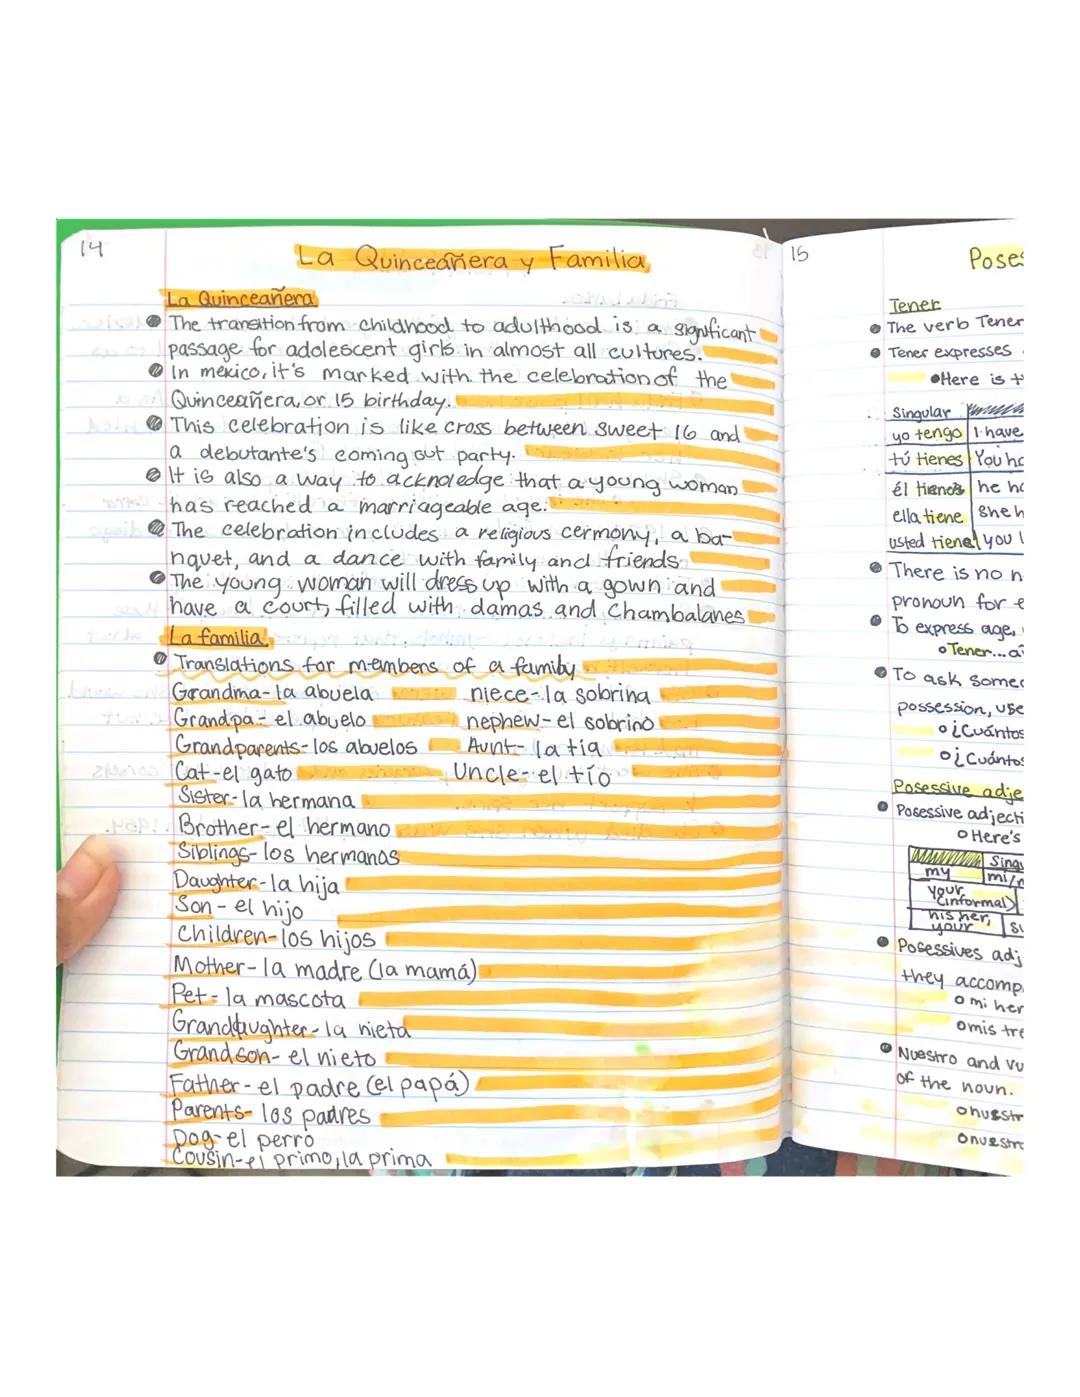 14
La Quinceañera y Familia
La Quinceañera
The transition from childhood to adulthood is a significant
passage for adolescent girls in almost all cultures.
In mexico, it's marked with the celebration of the
Quinceañera, or 15 birthday.
This celebration is like cross between sweet 16 and
a debutante's coming out party.
It is also a way to acknoledge that a young woman
has reached a marriageable age.
The celebration includes a religious cermony, a ba-
nquet, and a dance with family and friends
The young woman will dress up with a gown and
have a court, filled with damas and Chambalanes
La familia
Translations for members of a family
Grandma- la abuela niece- la sobrina
Grandpa- el abuelo nephew- el sobrino
Grandparents- los abuelos Aunt- la tía
Cat- el gato Uncle- el tío
Sister- la hermana
Brother- el hermano
Siblings- los hermanos
Daughter- la hija
Son- el hijo
Children- los hijos
Mother- la madre (la mamá)
Pet- la mascota
Granddaughter- la nieta
Grandson- el nieto
Father- el padre (el papá)
Parents- los padres
Dog- el perro
Cousin- el primo, la prima
15
Poses
Tener
The verb Tener
Tener expresses
Here is
Singular
yo tengo I have
tú tienes You ha
él tienes he ha
ella tiene she h
usted tiene you
There is no n
pronoun for e
To express age,
Tener... a
To ask somec
possession, use
¿Cuántos
¿Cuántos
Posessive adje
Posessive adjecti
Here's
Singu
my mi/m
your
(informal)
his, her,
your su
Posessives adj
they accomp
mi her
mis tre
Nuestro and vu
of the noun.
nuestr
nuestro